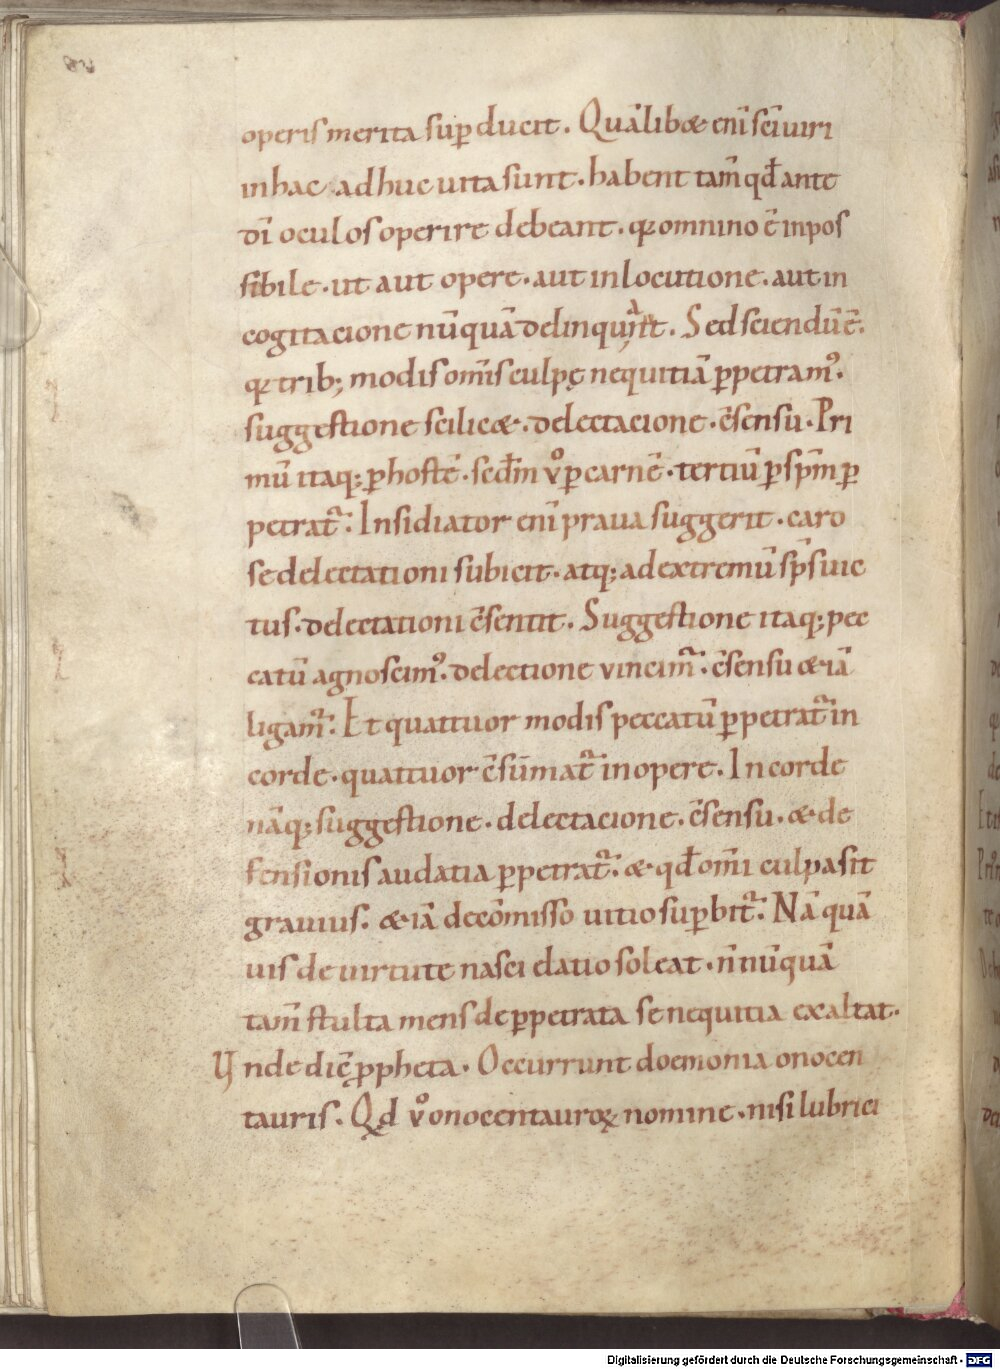 operis merita sup̄ducit. Quālibæ enī sc̄i uiri
in hac adhuc uita sunt. habent tam̄ qđ ante
dī oculos operire debeant. qꝛ omnino ē inpos
sibile. ut aut opere. aut in locutione. aut in
cogitacione nūquā delinquant. Sed sciendū ē.
qꝛ trib; modis omīs culpę nequitiā ꝑpetramꝰ.
suggestione scilicæ. delectacione. c̄sensu. Pri
mū itaq; ꝑ hostē. secđm v̊ ꝑ carnē. tertiū ꝑ sp̄m ꝑ
petrat᷑. Insidiator enī praua suggerit. caro
se delectationi subicit. atq; ad extremū sp̄s uic
tus. delectationi c̄sentit. Suggestione itaq; pec
catū agnoscimꝰ. delectione vincim᷑. c̄sensu æ iā
ligam᷑. Et quattuor modis peccatū ꝑpetrat᷑ in
corde. quattuor c̄sūmat᷑ in opere. In corde
nāq; suggestione. delectacione. c̄sensu. æ de
fensionis audatia ꝑpetrat᷑. æ qđ omī culpa sit
grauius. æ iā de cōmisso uitio suꝑbit᷑. Nā quā
uis de uirtute nasci elatio soleat. n̄ nūquā
tam̄ stulta mens de ꝑpetrata se nequitia exaltat.
Vnde dic̄ ꝓpheta. Occurrunt doemonia onocen
tauris. Qd v̊ onocentauroꝝ nomine. nisi lubrici
Digitalisierung gefördert durch die Deutsche Forschungsgemeinschaft - DFG